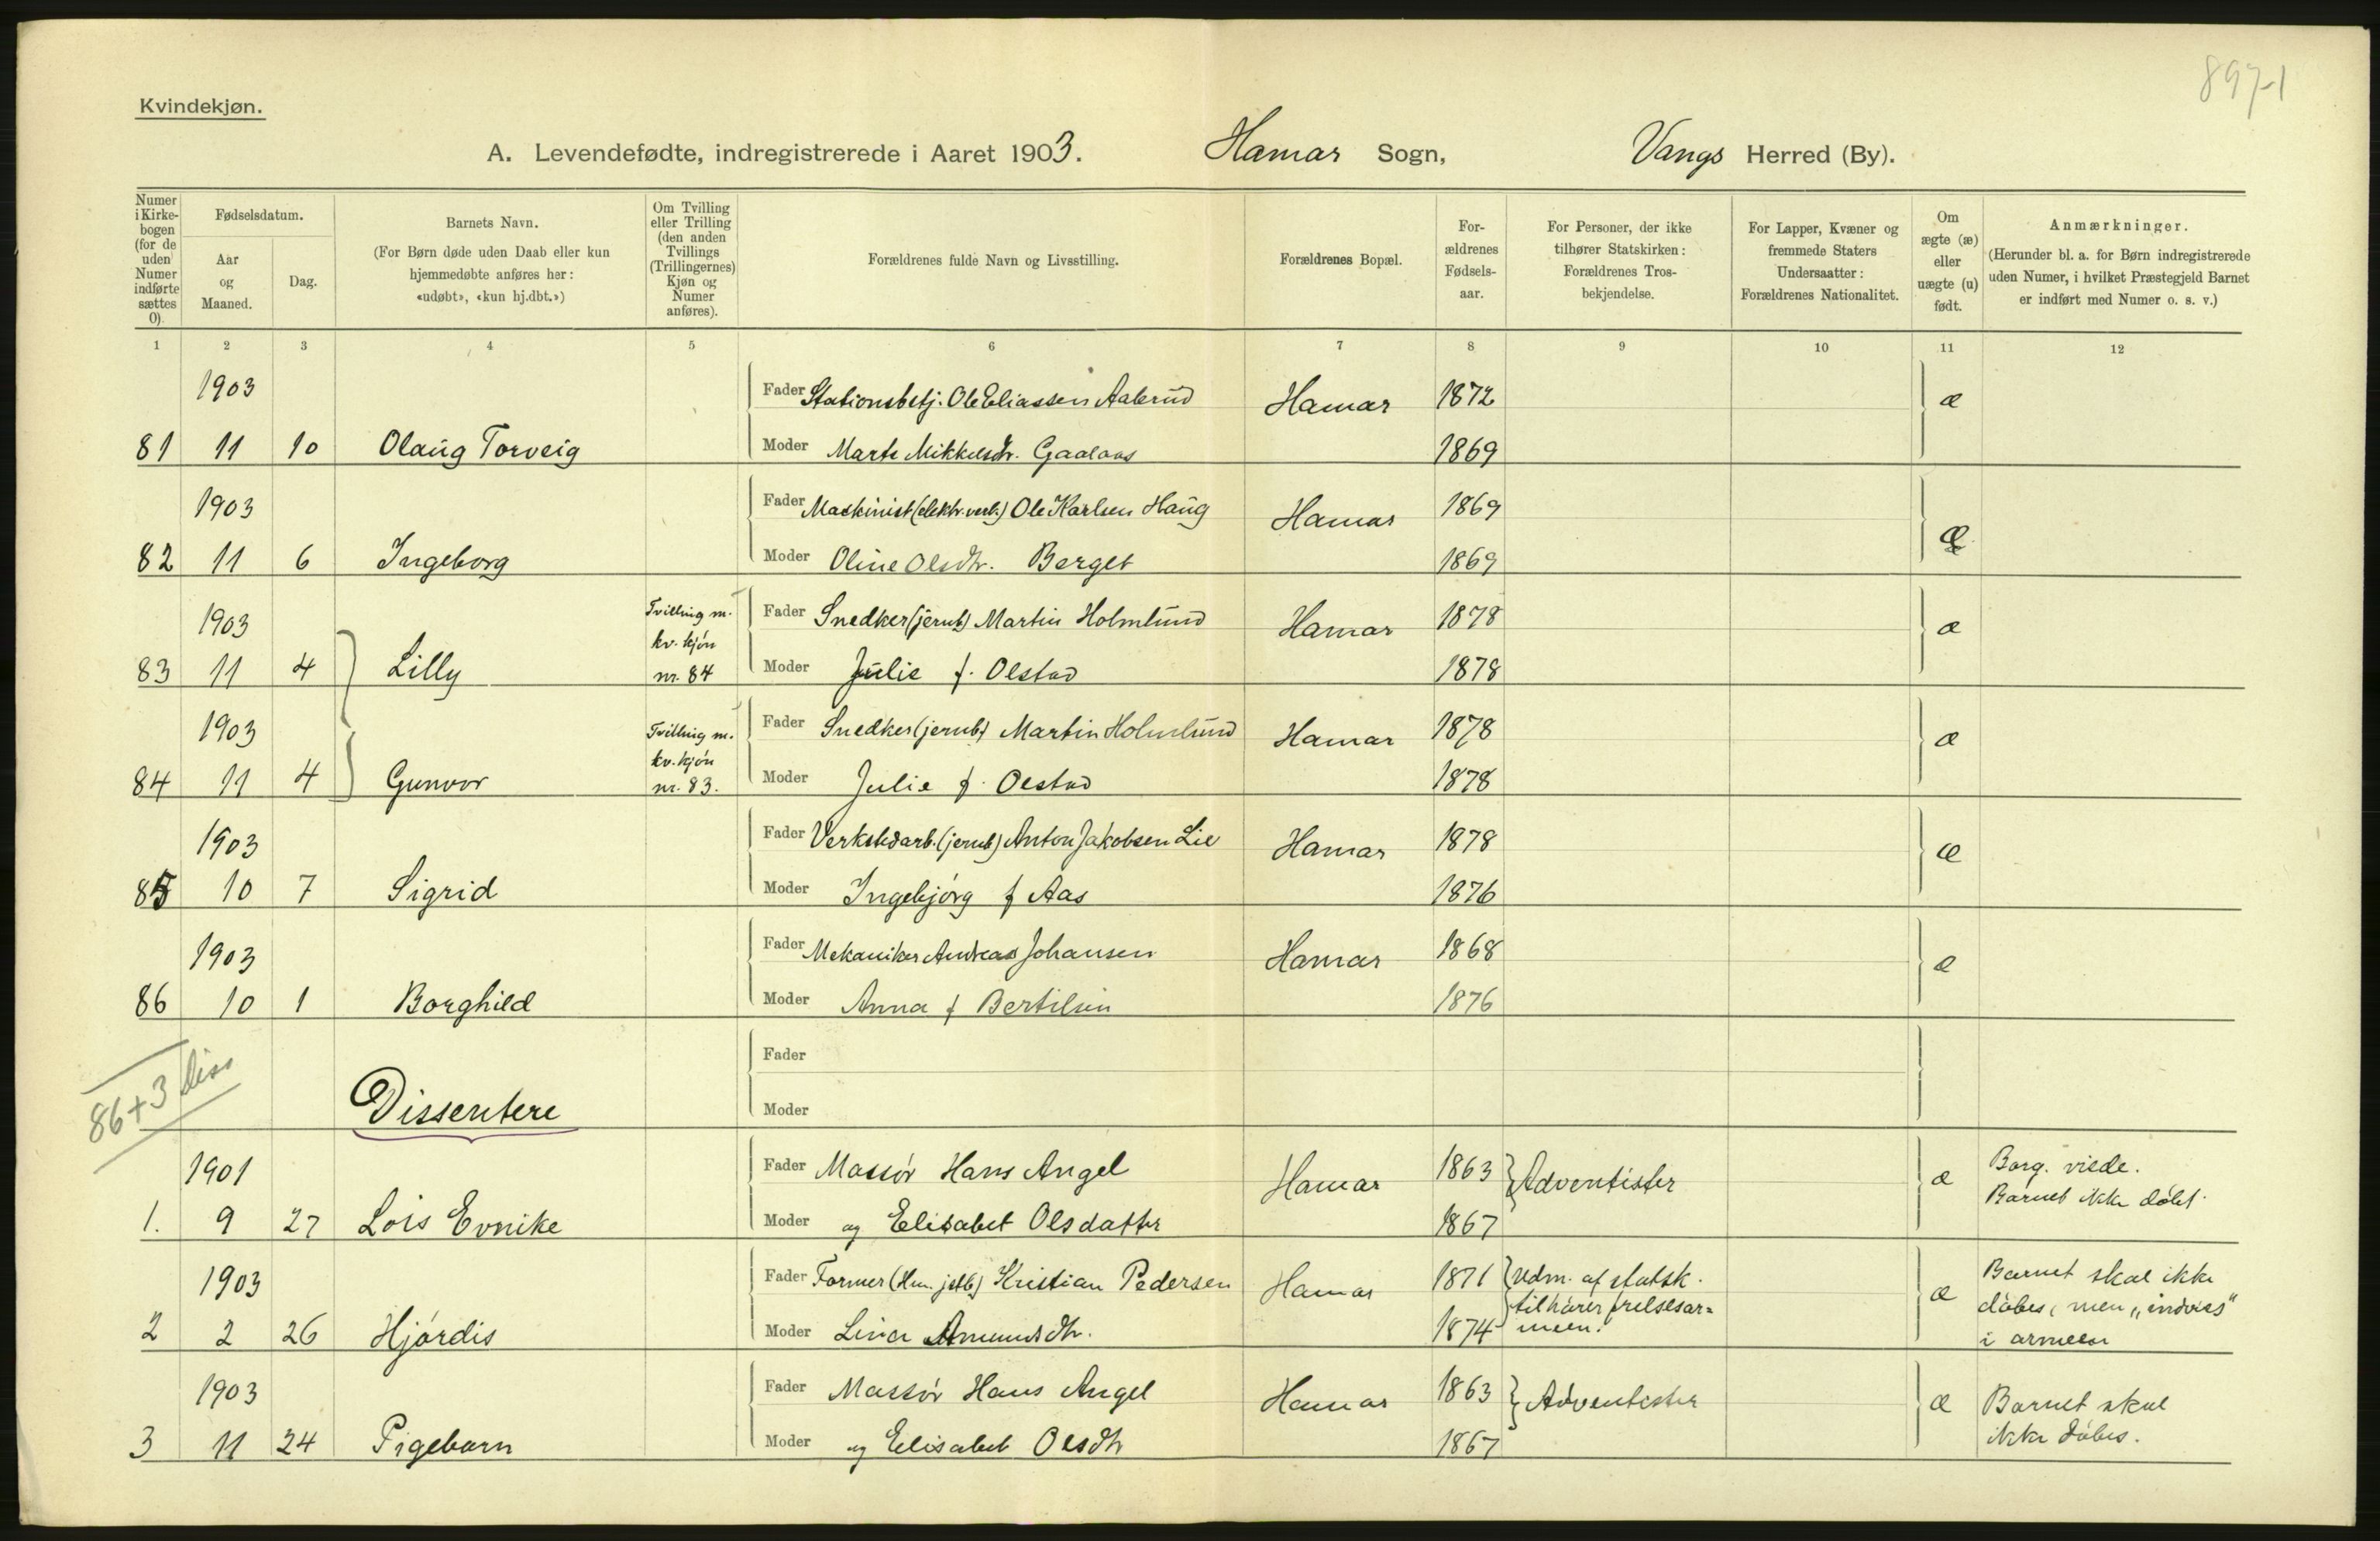 897-1
Kvindekjøn.
A. Levendefødte, indregistrerede i Aaret 1903. Hamar Sogn, Vangs Herred (By).
Numer i Kirke-bogen (for de uden Numer indførte sættes 0).
Fødselsdatum.
Aar og Maaned.
Dag.
Barnets Navn.
(For Børn døde uden Daab eller kun hjemmedøbte anføres her: «udøbt», «kun hj.dbt.»)
Om Tvilling eller Trilling (den anden Tvillings (Trillingernes) Kjøn og Numer anføres).
Forældrenes fulde Navn og Livsstilling.
Forældrenes Bopæl.
For-ældrenes Fødsels-aar.
For Personer, der ikke tilhører Statskirken: Forældrenes Tros-bekjendelse.
For Lapper, Kvæner og fremmede Staters Undersaatter: Forældrenes Nationalitet.
Om ægte (æ) eller uægte (u) født.
Anmærkninger.
(Herunder bl. a. for Børn indregistrerede uden Numer, i hvilket Præstegjeld Barnet er indført med Numer o. s. v.)
1 2 3 4 5 6 7 8 9 10 11 12
1903 Fader Stationsbetj. Ole Eliassen Aalerud Hamar 1872 æ
81 11 10 Olaug Torveig Moder Marte Mikkelsdtr. Gaalaas 1869
1903 Fader Maskinist (elektr. verk.) Ole Karlsen Haug Hamar 1869 æ
82 11 6 Ingeborg Moder Oline Olsdtr. Berget 1869
1903 Tvilling m. kv. kjøn nr. 84 Fader Snedker (jernb.) Martin Holmlund Hamar 1878 æ
83 11 4 Lilly Moder Julie f. Olstad 1878
1903 Tvilling m. kv. kjøn nr. 83. Fader Snedker (jernb.) Martin Holmlund Hamar 1878 æ
84 11 4 Gunvor Moder Julie f. Olstad 1878
1903 Fader Verkstedarb. (jernb.) Anton Jakobsen Lie Hamar 1878 æ
85 10 7 Sigrid Moder Ingebjørg f Aas 1876
1903 Fader Mekaniker Andreas Johansen Hamar 1868 æ
86 10 1 Borghild Moder Anna f Bertilsen 1876
86 + 3 diss
Fader
Dissentere Moder
1901 Fader Massör Hans Angel Hamar 1863 Adventister æ Borg. viede. Barnet ikke döbt.
1. 9 27 Lois Evnike Moder og Elisabet Olsdatter 1867
1903 Fader Former (Ham. jstb.) Kristian Pedersen Hamar 1871 udm. af statsk. tilhører frelsesar=meen. æ Barnet skal ikke döbes, men „indvies" i armeen
2 2 26 Hjördis Moder Lina Amundsdtr. 1874
1903 Fader Massör Hans Angel Hamar 1863 Adventister æ Barnet skal ikke döbes.
3 11 24 Pigebarn Moder og Elisabet Olsdtr 1867